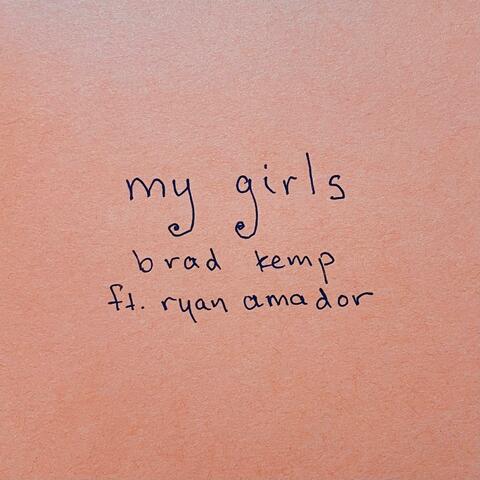 my girls
brad kemp
ft. ryan amador